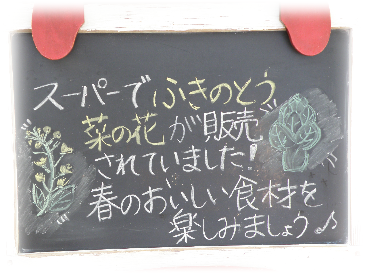 スーパーでふきのとう
菜の花が販売
されていました!
春のおいしい食材を
楽しみましょう♪